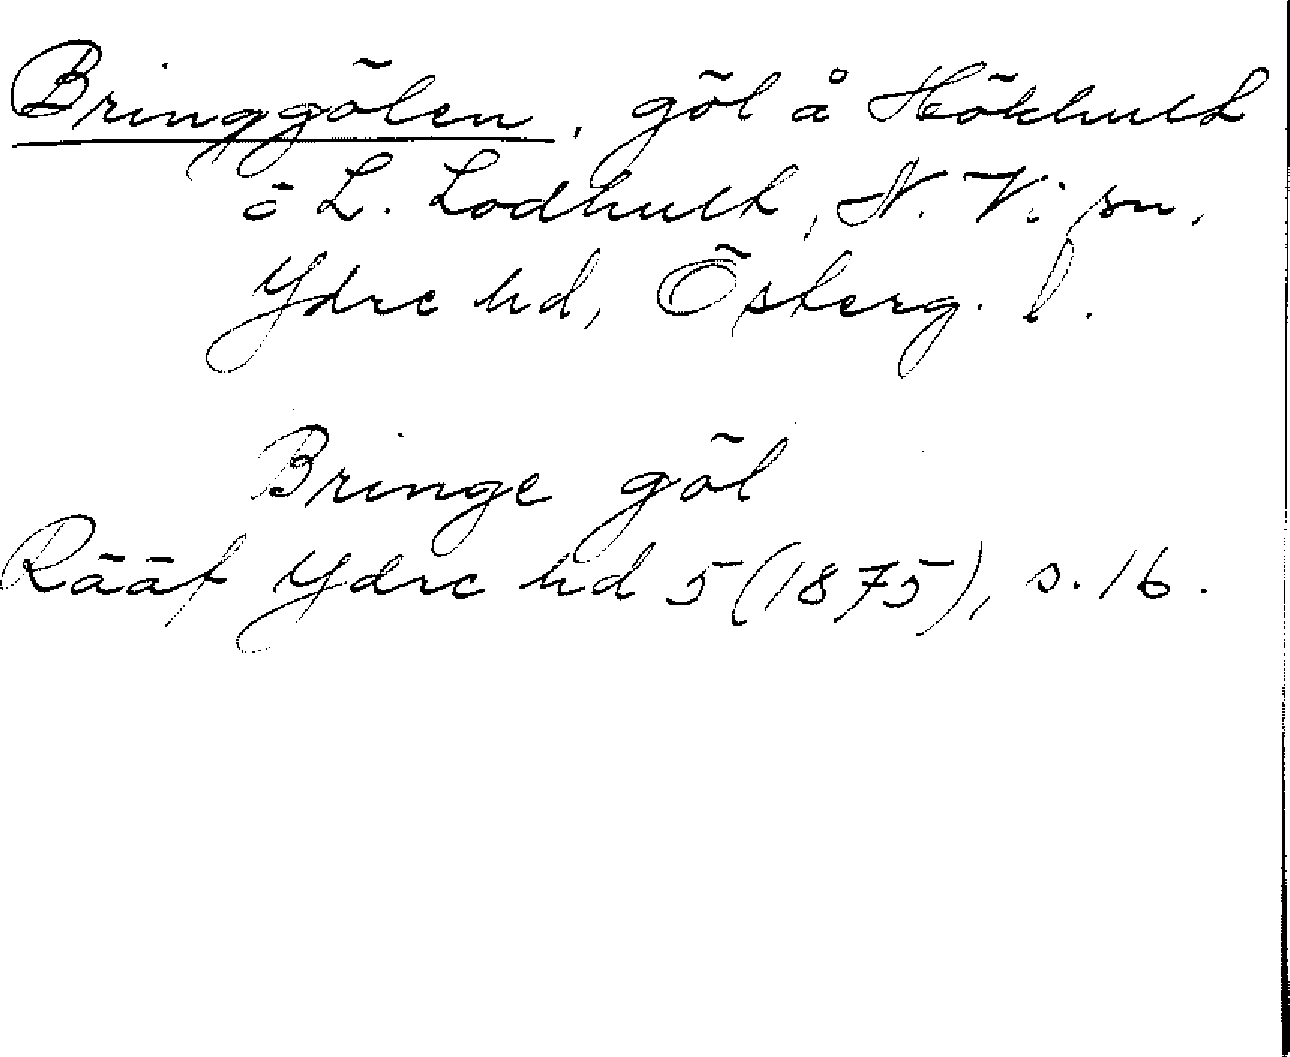 Bringgölen, göl å Hökhult
o L. Lodhult, N. Vi sn,
Ydre hd, Österg. l.
Bringe göl
Rääf Ydre hd 5 (1875), s. 16.